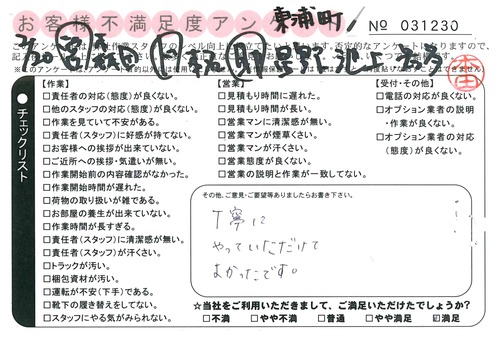 お客様不満足度アン
東浦町
No 031230
【作業】
□責任者の対応(態度)が良くない。
□他のスタッフの対応(態度)が良くない。
□作業を見ていて不安がある。
□責任者(スタッフ)に好感が持てない。
□お客様への挨拶が出来ていない。
□ご近所への挨拶・気遣いが無い。
□作業開始前の内容確認がなかった。
□作業開始時間が遅れた。
□荷物の取り扱いが雑である。
□お部屋の養生が出来ていない。
□作業時間が長すぎる。
□責任者(スタッフ)に清潔感が無い。
□責任者(スタッフ)が汗くさい。
□トラックが汚い。
□梱包資材が汚い。
□運転が不安(下手)である。
□靴下の履き替えをしてない。
□スタッフにやる気がみられない。
【営業】
□見積もり時間に遅れた。
□見積もり時間が長い。
□営業マンに清潔感が無い。
□営業マンが煙草くさい。
□営業マンが汗くさい。
□営業態度が良くない。
□営業の説明と作業が一致してない。
【受付・その他】
□電話の対応が良くない。
□オプション業者の説明
・作業が良くない。
□オプション業者の対応
(態度)が良くない。
チェックリスト
その他、ご意見・ご要望等ありましたらお書き下さい。
丁寧に
やっていただけて
よかったです。
☆当社をご利用いただきまして、ご満足いただけてたでしょうか?
□不満 □やや不満 □普通 □やや満足 ☑満足